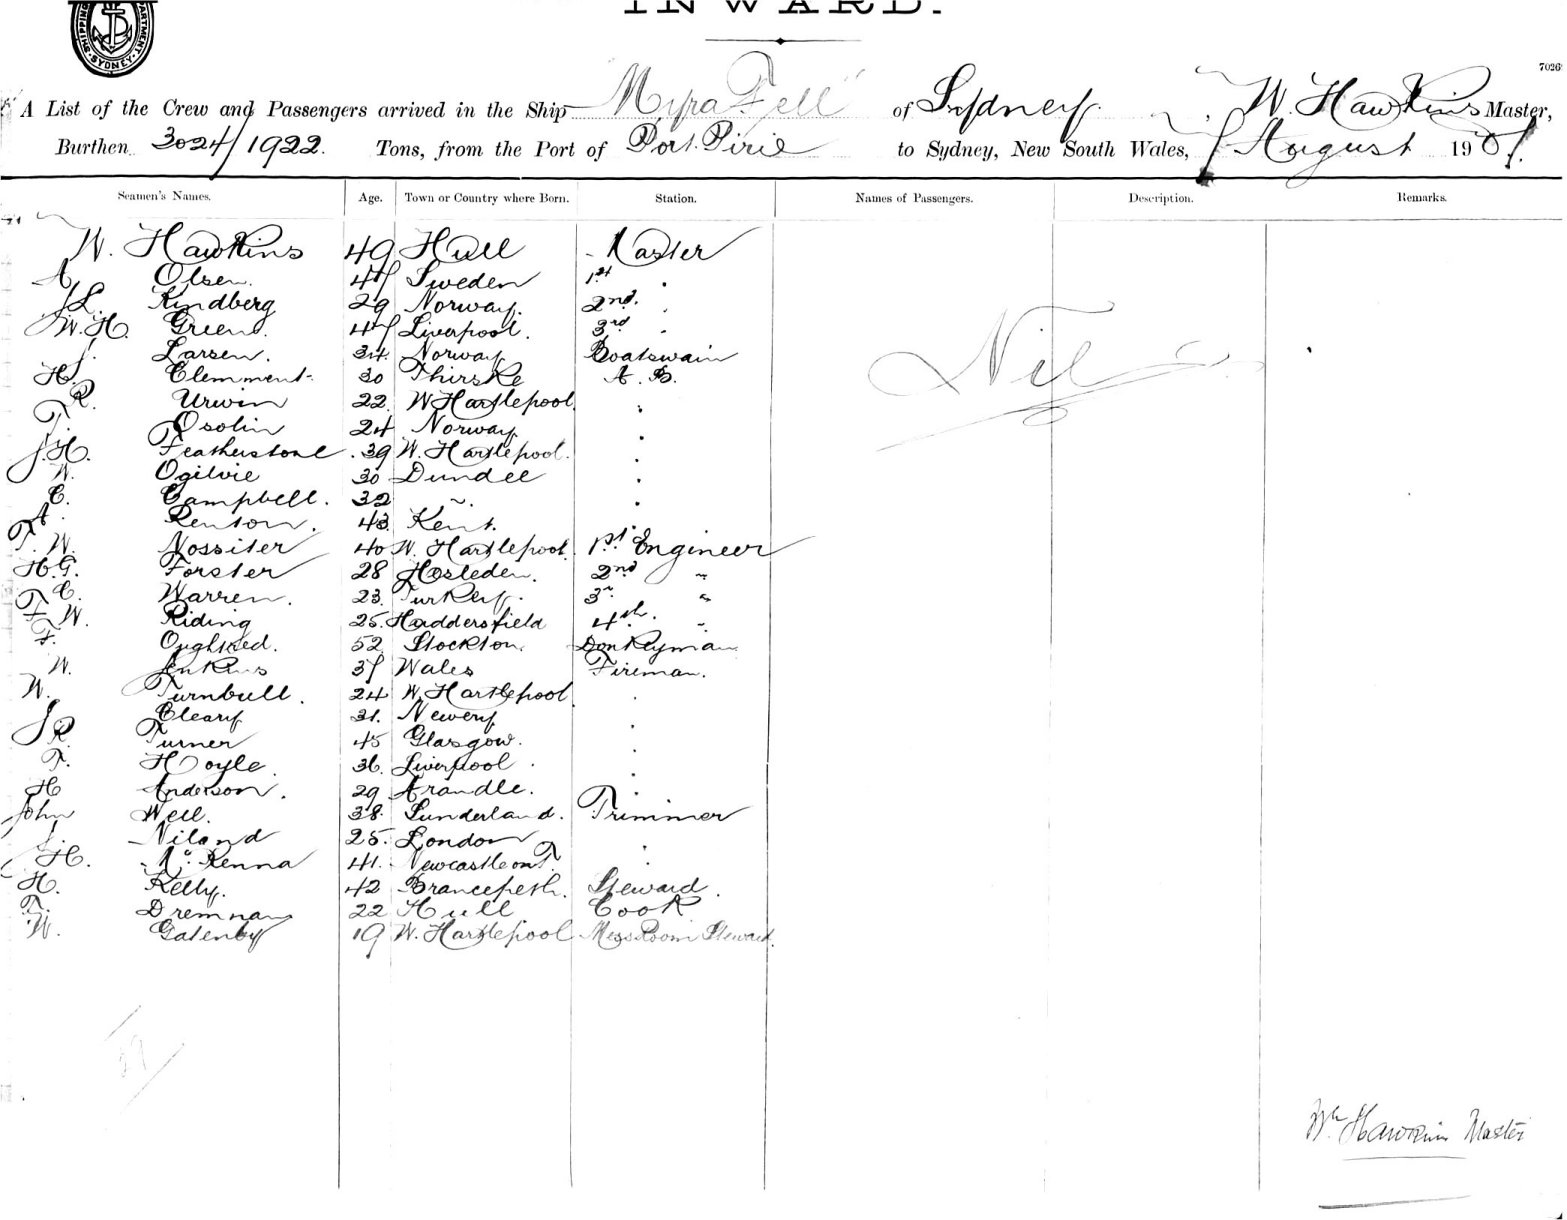 INWARD.
SHIPPING DEPARTMENT. SYDNEY.
7026
A List of the Crew and Passengers arrived in the Ship "Myra Fell" of Sydney, W. Hawkins Master,
Burthen 3024/1922. Tons, from the Port of Port Pirie to Sydney, New South Wales, August 190
Seamen's Names. Age. Town or Country where Born. Station. Names of Passengers. Description. Remarks.
W. Hawkins 49 Hull Master
A. Olsen. Sweden 1st "
J.L. Lindberg 29 Norway. 2nd. "
W.H. Green. Liverpool. 3rd "
J. Larsen. 34. Norway Boatswain
H. Clemment. 30 Thirske A.B.
R. Urwin 22. W Hartlepool "
T. Osolin 24 Norway "
J.H. Featherstone. 39 W. Hartlepool. "
W. Ogilvie 30 Dundee "
C. Campbell. 32 " "
A. Renton. 43 Kent. "
T. W. Nossiter 40 W. Hartlepool. 1st Engineer
H.G. Forster 28 2nd "
T. C. Warren. 23. Turkey. 3rd "
F. W. Riding 25. Haddersfield 4th. "
F. Oughtred. 52 Stockton. Donkeyman
W. Jenkins Wales Fireman.
W. Turnbull. 24 W. Hartlepool "
J. Cleary 31. Newery "
R. Turner 45 Glasgow. "
T. Hoyle. 36. Liverpool. "
H Anderson. 29 Arandle. "
John Weil. 38. Sunderland. Trimmer
J. Niland 25. London "
H. McKenna 41. Newcastle on T. "
H. Kelly. 42 Brancepeth. Steward.
T. Dremnan 22 Hull Cook
W. Gatenby 19 W. Hartlepool Mess Room Steward.
Nil
29
Wm Hawkins Master